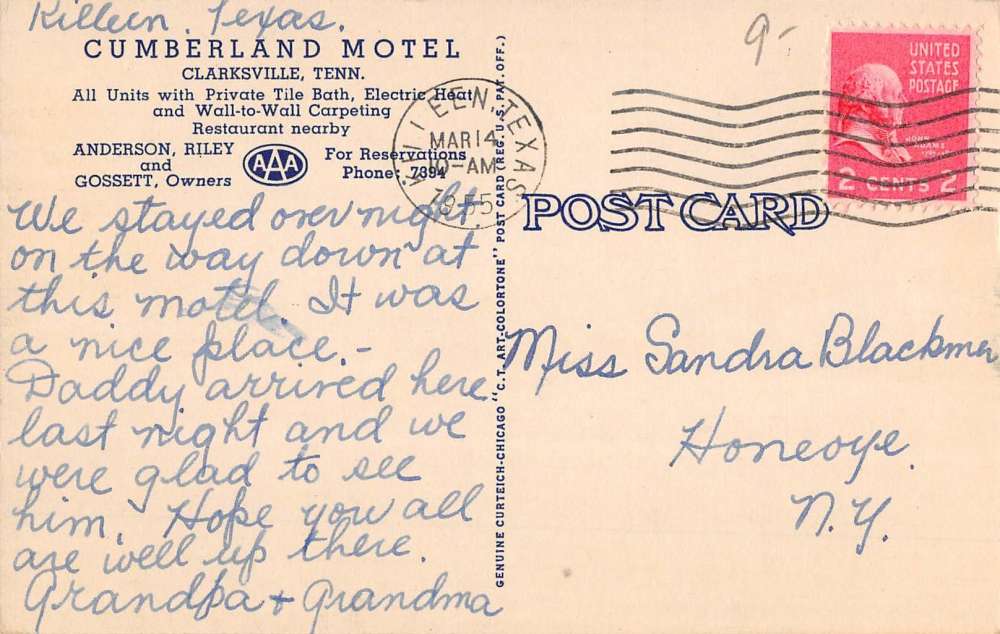 Killeen, Texas.
CUMBERLAND MOTEL
CLARKSVILLE, TENN.
All Units with Private Tile Bath, Electric Heat
and Wall-to-Wall Carpeting
Restaurant nearby
ANDERSON, RILEY
and
GOSSETT, Owners
AAA
For Reservations
Phone: 7394
We stayed over night
on the way down at
this motel. It was
a nice place.-
Daddy arrived here
last night and we
were glad to see
him. Hope you all
are well up there.
Grandpa + Grandma
GENUINE CURTEICH-CHICAGO "C.T. ART-COLORTONE" POST CARD (REG. U.S. PAT. OFF.)
KILLEEN, TEXAS
MAR 14
10-AM
1955
9-
UNITED
STATES
POSTAGE
JOHN
ADAMS
2 CENTS 2
POST CARD
Miss Sandra Blackmer
Honeoye.
N.Y.